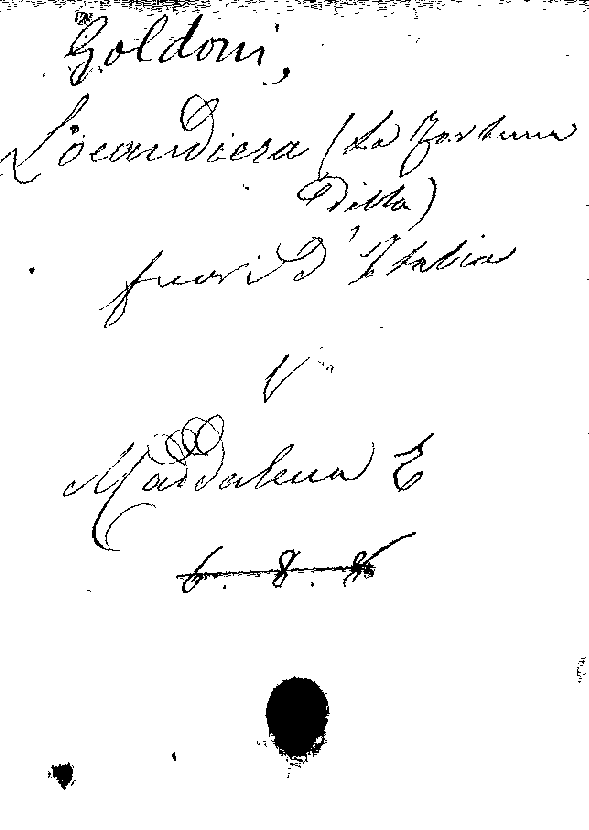 Goldoni,
Locandiera (La Fortuna
Ditta)
fuori d'Italia
V
Maddalena E
6. 8. 8